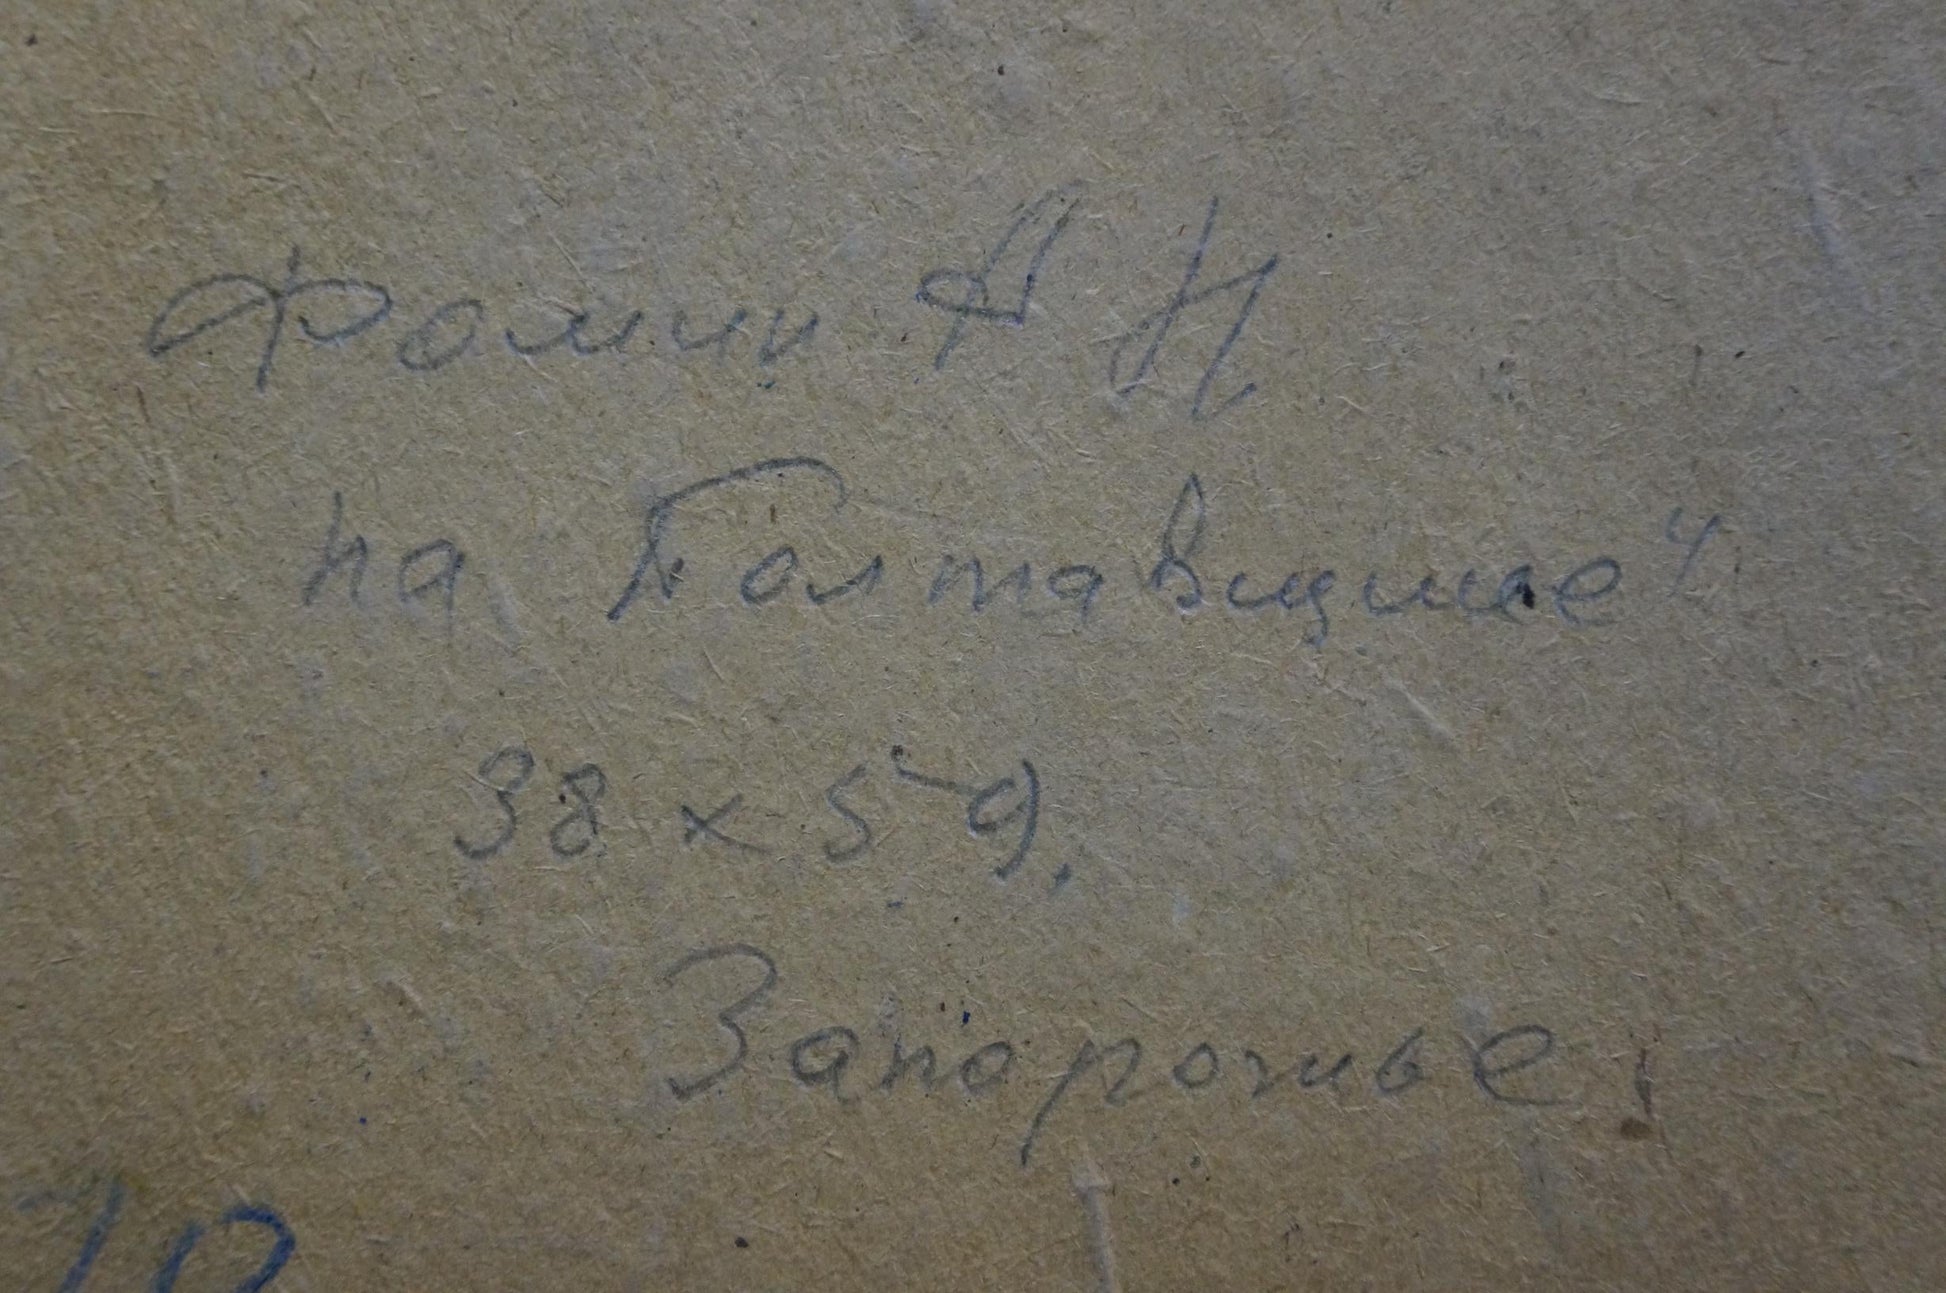 Фомин А Н.
на Полтавщине"
38 х 59.
Запорожье.
70